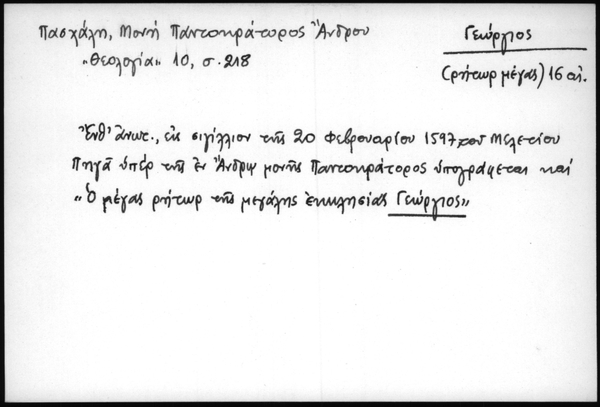 Πασχάλη, Μονή Παντοκράτορος Ἄνδρου
Γεώργιος
"Θεολογία" 10, σ. 218
(ρήτωρ μέγας) 16 αἰ.
Ἔνθ' ἀνωτ., εἰς σιγίλλιον τῆς 20 Φεβρουαρίου 1597 τοῦ Μελετίου
Πηγᾶ ὑπέρ τῆς ἐν Ἄνδρῳ μονῆς Παντοκράτορος ὑπογράφεται καί
"Ὁ μέγας ρήτωρ τῆς μεγάλης ἐκκλησίας Γεώργιος"